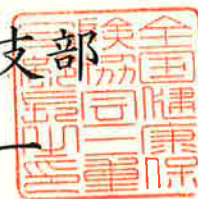 支部
一
全国健康保
険協会三重
支部長之印